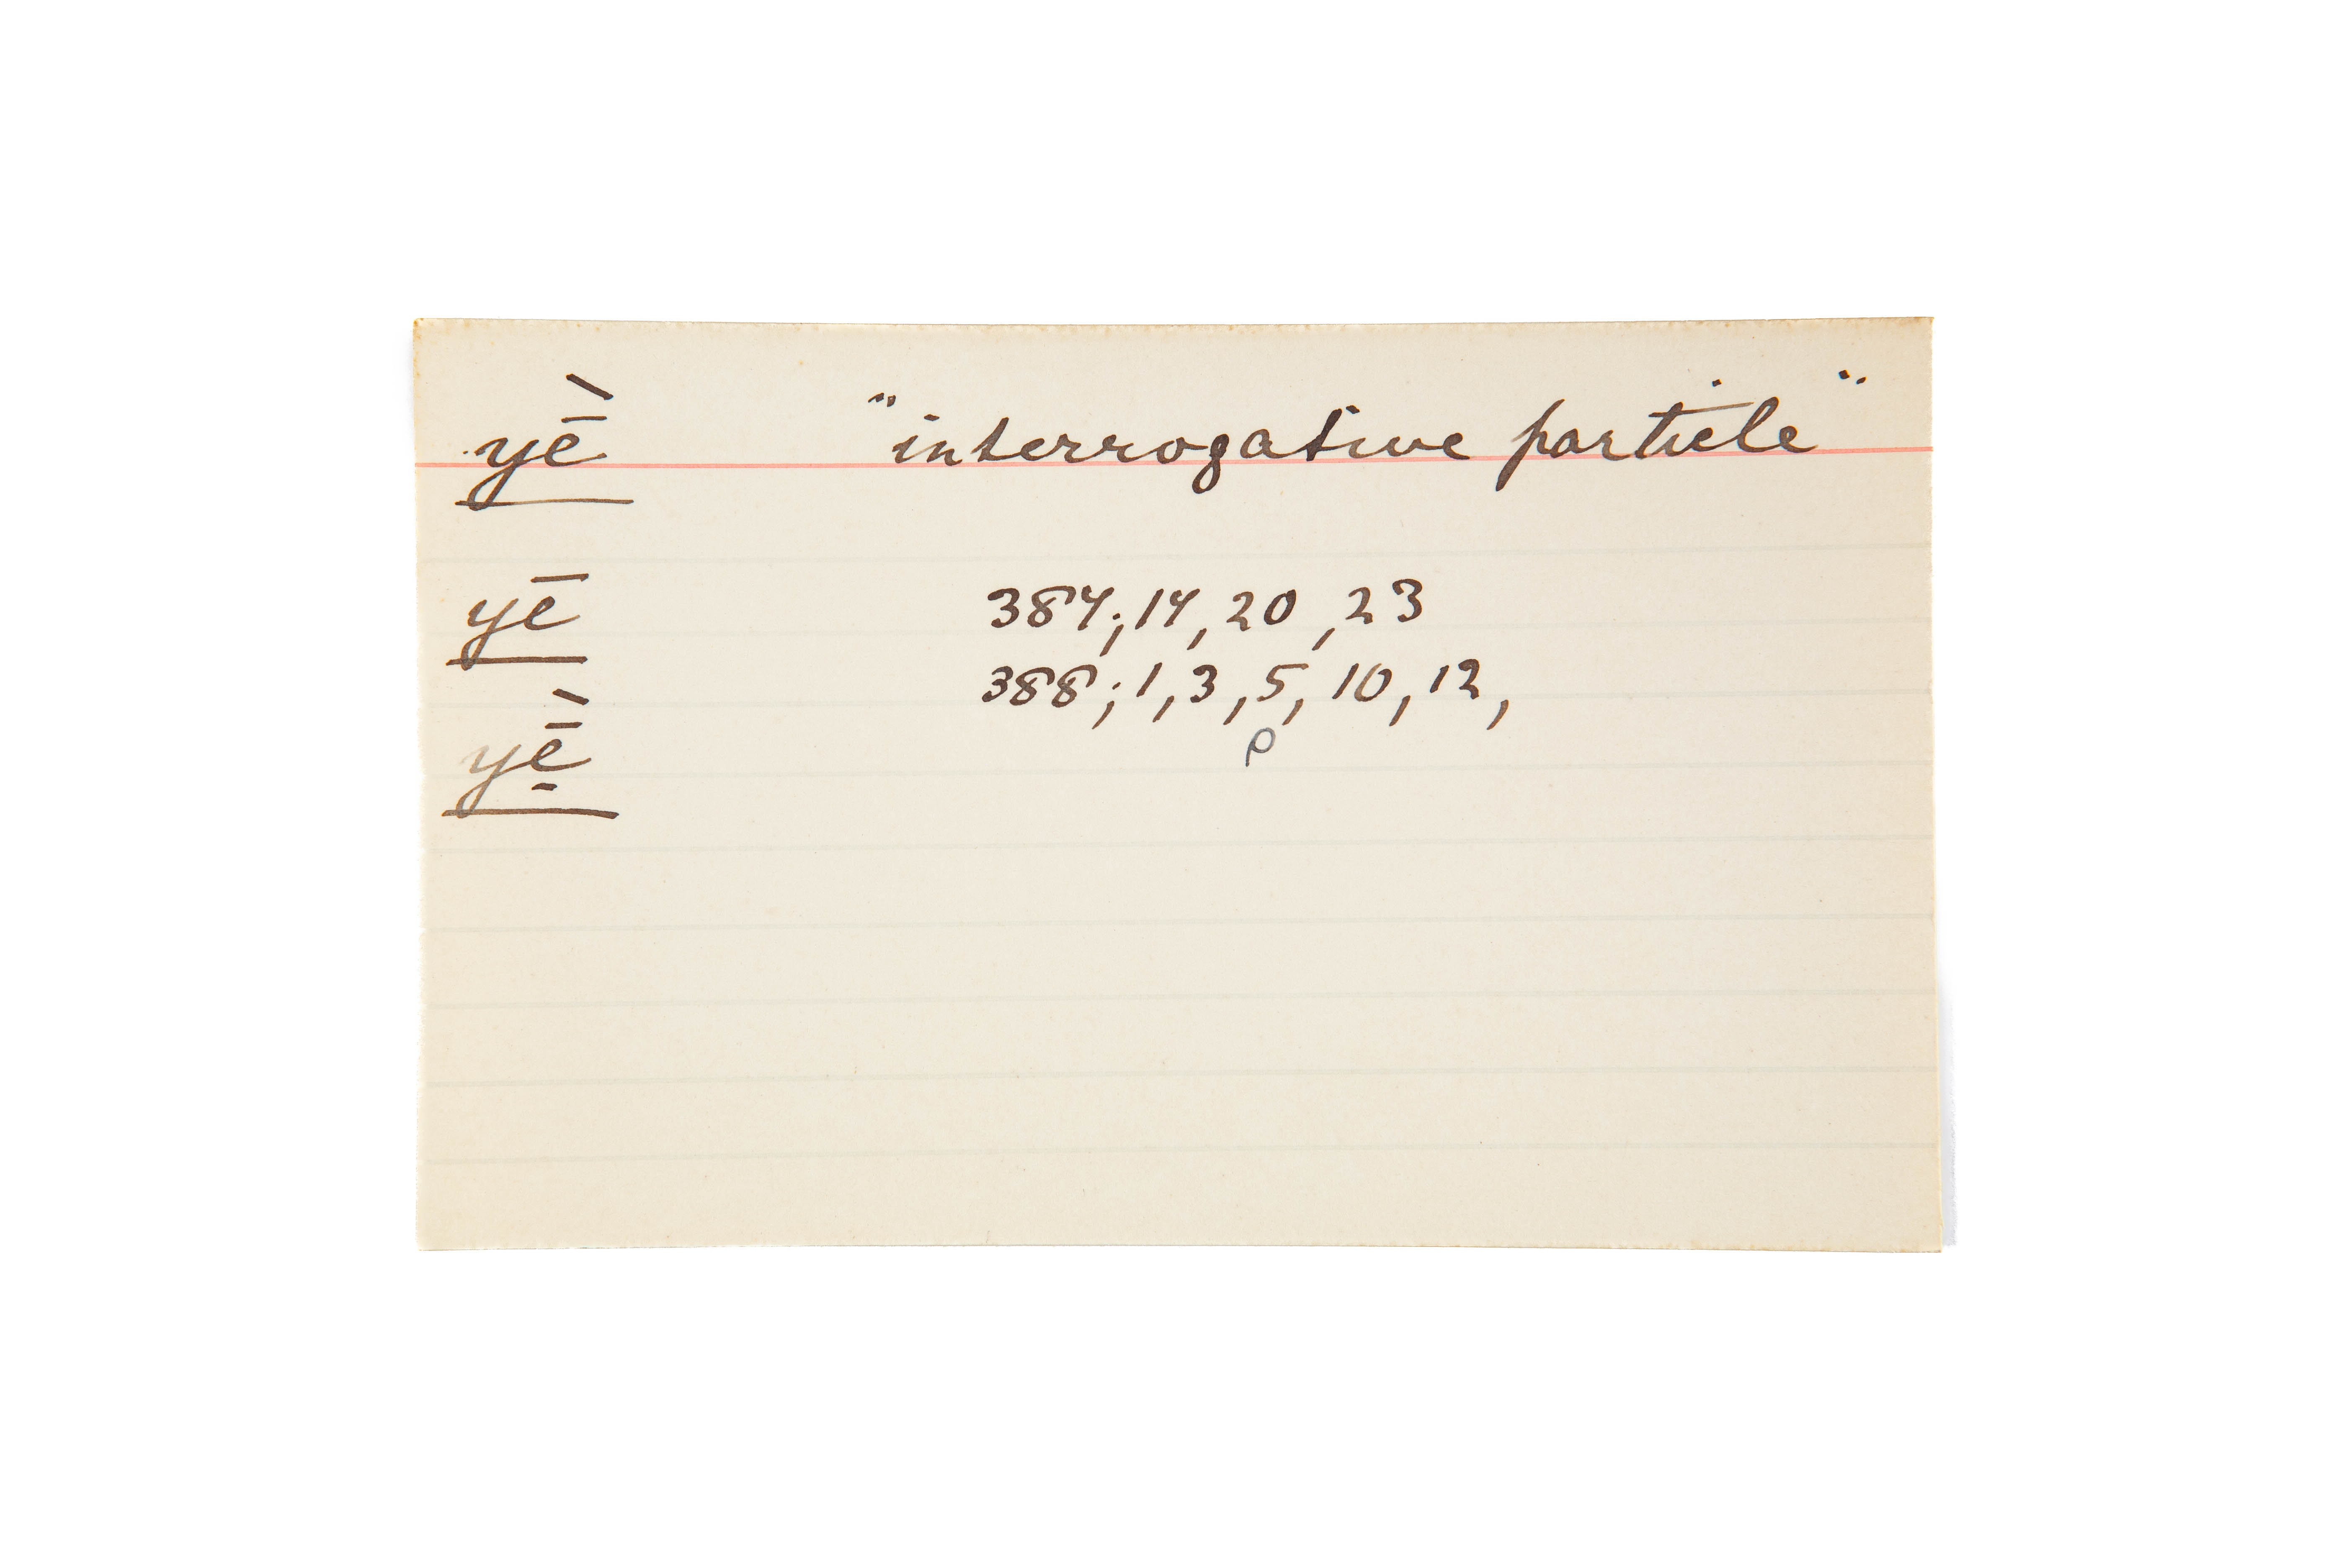 yḕ "interrogative particle"
yē 384;14,20,23
388;1,3,5,10,12,
yḕ̱